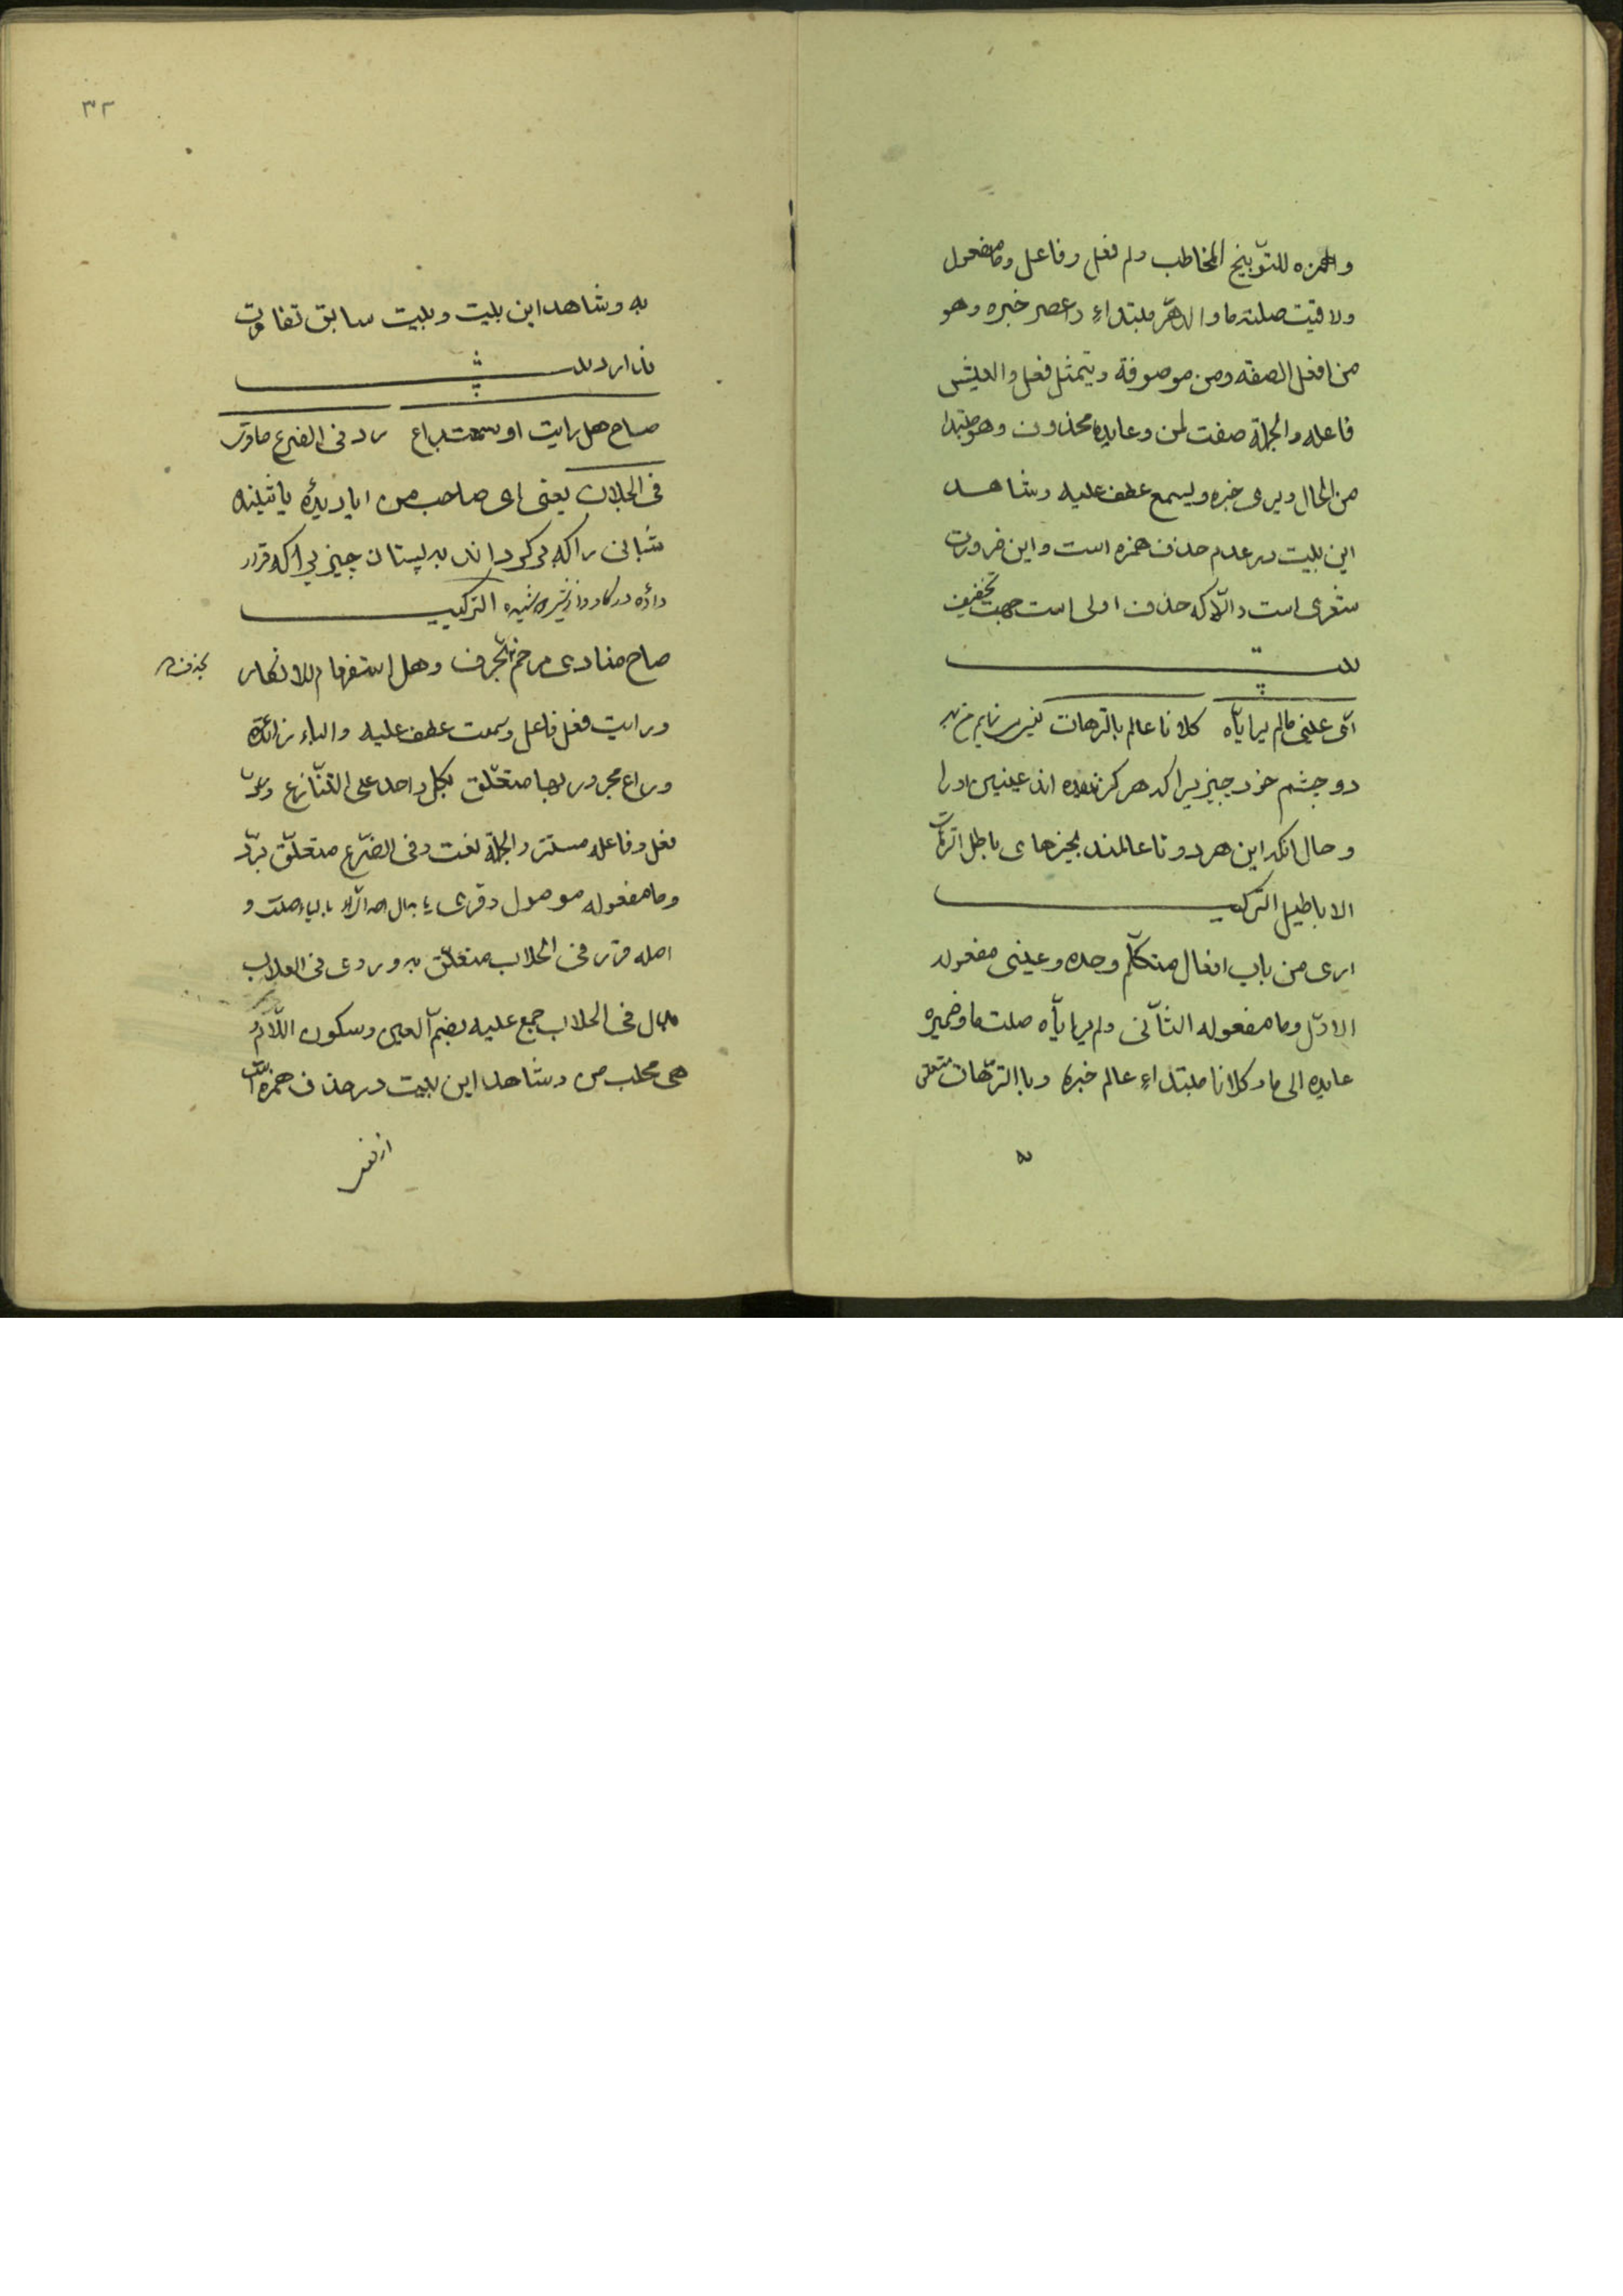 والهمزه للتوبیخ المخاطب ولم فعل وفاعل وما مفعول
ولاقیت صلته ما والدهر مبتداء واعصر خبره وهو
من افعل الصفه ومن موصوفة ویتمثل فعل والعیش
فاعله والجملة صفت لمن وعایده محذوف وهو مبتدا
من الحال ویری خبره ویسمع عطف علیه وشاهد
این بیت در عدم حذف همزه است واین ضرورت
شعری است والّا که حذف اولی است جهت تخفیف
بیت
اری عینی مالم یرایاه کلانا عالم بالترهات یعنی
دو چشم خود چیزیرا که هرکز ندیده اند عینین اورا
وحال انکه این هر دو تا عالمند بچیزهای باطل الترهات
الاباطیل الترکیب
اری من باب افعال متکلّم وحده وعینی مفعوله
الاوّل وما مفعوله الثانی ولم یرایاه صلت ما وضمیره
عایده الی ما وکلانا مبتداء عالم خبره وبالترّهات متعلق
به
٣٢
به وشاهد این بیت وبیت سابق تفاوت
ندارد بیت
صاح هل رایت او سمعت براع رد فی الضرع ما قری
فی الحلاب یعنی ای صاحب من ایا دیدهٔ یا شنیده
شبانی را که بر کرداند به پستان چیزیرا که قرار
داده در کاو دوشی از شیر الترکیب
صاح منادی مرخم وهل استفهام للانکار
بحذف
ورایت فعل فاعل وسمعت عطف علیه والباء زائدة
وراع مجرور بها متعلّق بکل واحد علی التنازع وردّ
فعل وفاعله مستتر والجملة نعت وفی الضرع متعلّق بردّ
وما مفعوله موصول وقری صلت و
اصله قرر فی الحلاب متعلّق به وروی فی العلاب
بدل فی الحلاب جمع علبه بضمّ العین وسکون اللام و
هی محلب من وشاهد این بیت در حذف همزه است
از